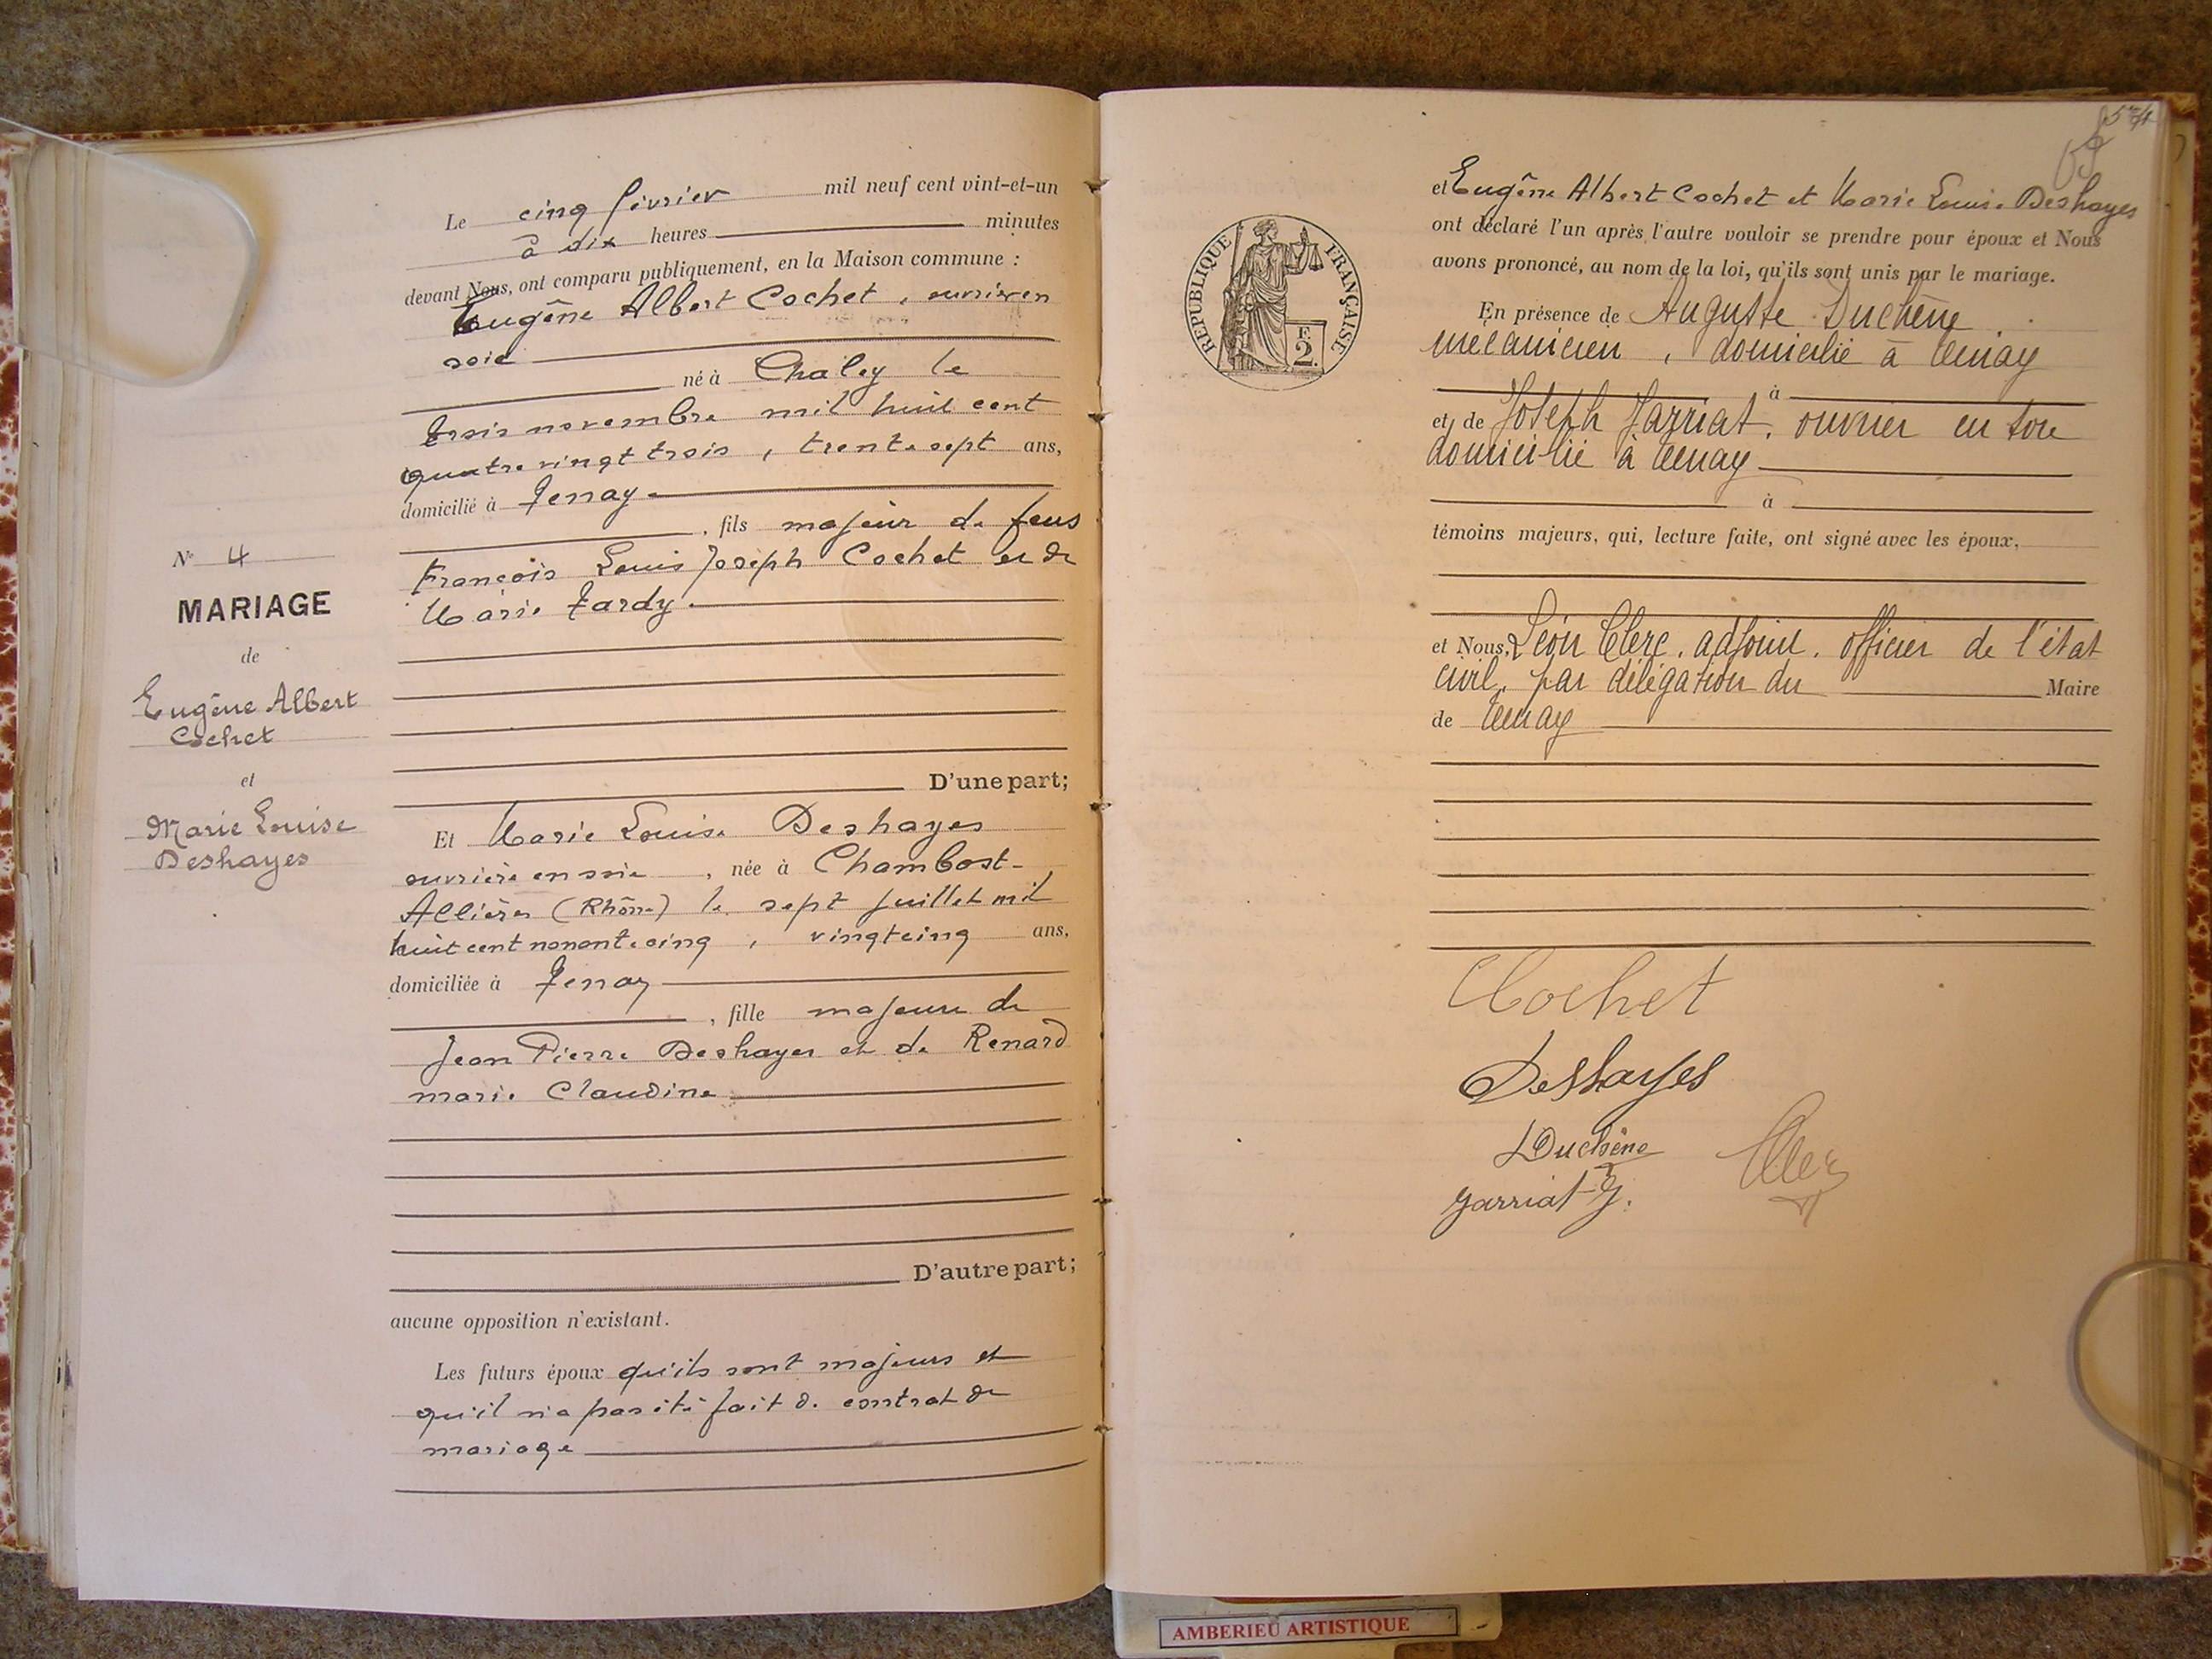 Le cinq février mil neuf cent vint-et-un
à dix heures minutes
devant Nous, ont comparu publiquement, en la Maison commune :
Eugène Albert Cochet, ouvrier en
soie
né à Chaley le
trois novembre mil huit cent
quatre vingt trois, trente sept ans,
domicilié à Tenay
, fils majeur de feus
François Louis Joseph Cochet et de
Marie Tardy.
D'une part;
N° 4
MARIAGE
de
Eugène Albert
Cochet
et
Marie Louise
Deshayes
Et Marie Louise Deshayes
ouvrière en soie, née à Chambost-
Allières (Rhône) le sept juillet mil
huit cent nonante cinq, vingt cinq ans,
domiciliée à Tenay
, fille majeure de
Jean Pierre Deshayes et de Renard
marie Claudine
D'autre part;
aucune opposition n'existant.
Les futurs époux qu'ils sont majeurs et
qu'il n'a pas été fait de contrat de
mariage
et Eugène Albert Cochet et Marie Louise Deshayes
ont déclaré l'un après l'autre vouloir se prendre pour époux et Nous
avons prononcé, au nom de la loi, qu'ils sont unis par le mariage.
RÉPUBLIQUE FRANÇAISE
F.
2.
En présence de Auguste Duchêne
mécanicien, domicilié à Tenay
à
et de Joseph Jarriat, ouvrier en soie
domicilié à Tenay
à
témoins majeurs, qui, lecture faite, ont signé avec les époux,
et Nous, Léon Clerc, adjoint, officier de l'état
civil, par délégation du Maire
de Tenay
Cochet
Deshayes
Duchêne
Clerc
Jarriat J.
AMBERIEU ARTISTIQUE